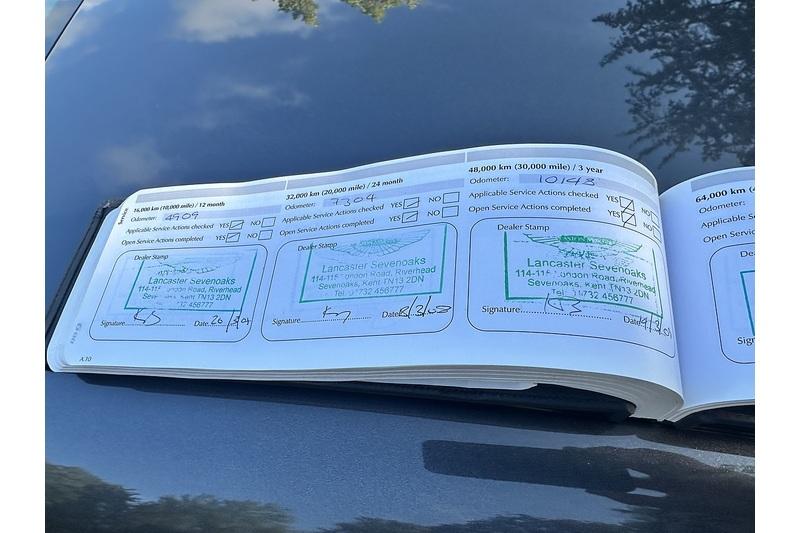 Service
16,000 km (10,000 mile) / 12 month
Odometer: 4909
Applicable Service Actions checked YES NO
Open Service Actions completed YES NO
Dealer Stamp
Lancaster Sevenoaks
114-115 London Road, Riverhead
Sevenoaks, Kent TN13 2DN
Tel. 01732 456777
Signature Date
A.10
32,000 km (20,000 mile) / 24 month
Odometer: 7304
Applicable Service Actions checked YES NO
Open Service Actions completed YES NO
Dealer Stamp
Lancaster Sevenoaks
114-115 London Road, Riverhead
Sevenoaks, Kent TN13 2DN
Tel. 01732 456777
Signature Date
48,000 km (30,000 mile) / 3 year
Odometer: 10143
Applicable Service Actions checked YES NO
Open Service Actions completed YES NO
Dealer Stamp
ASTON MARTIN
Lancaster Sevenoaks
114-115 London Road, Riverhead
Sevenoaks, Kent TN13 2DN
Tel. 01732 456777
Signature Date
64,000 km (
Odometer:
Applicable Se
Open Service
Dea
Sign